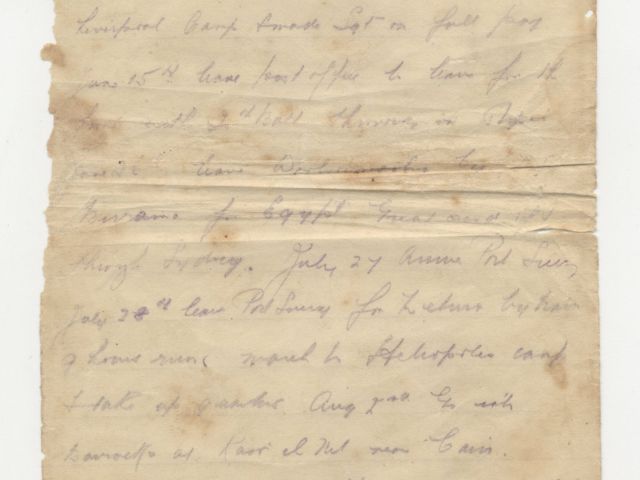 Liverpool Camp & made Sgt on full pay
June 15th leave post office to leave for the
with 2nd Batt
leave Woolloomooloo by
for Egypt Great send off
through Sydney. July 27 Arrive Port Suez
July 28th leave Port Suez for Zeitun by train
9 hours run march to Heliopolis camp
& take up quarters Aug 2nd Go into
Barracks at Kasr el Nil near Cairo.